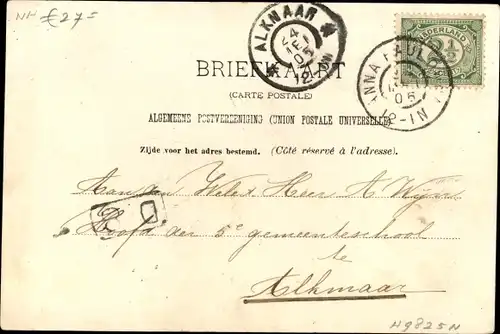 NH £27=
ALKMAAR
24
12-
BRIEFKAART
(CARTE POSTALE)
ALGEMEENE POSTVEREENIGING (UNION POSTALE UNIVERSELLE).
Zijde voor het adres bestemd. (Côté réservé à l'adresse).
NEDERLAND
2½
ANNA PAULO
06
12-1N
Aan den Wel Ed Heer A
Hoofd der 5e gemeenteschool
te
Alkmaar
H9825N